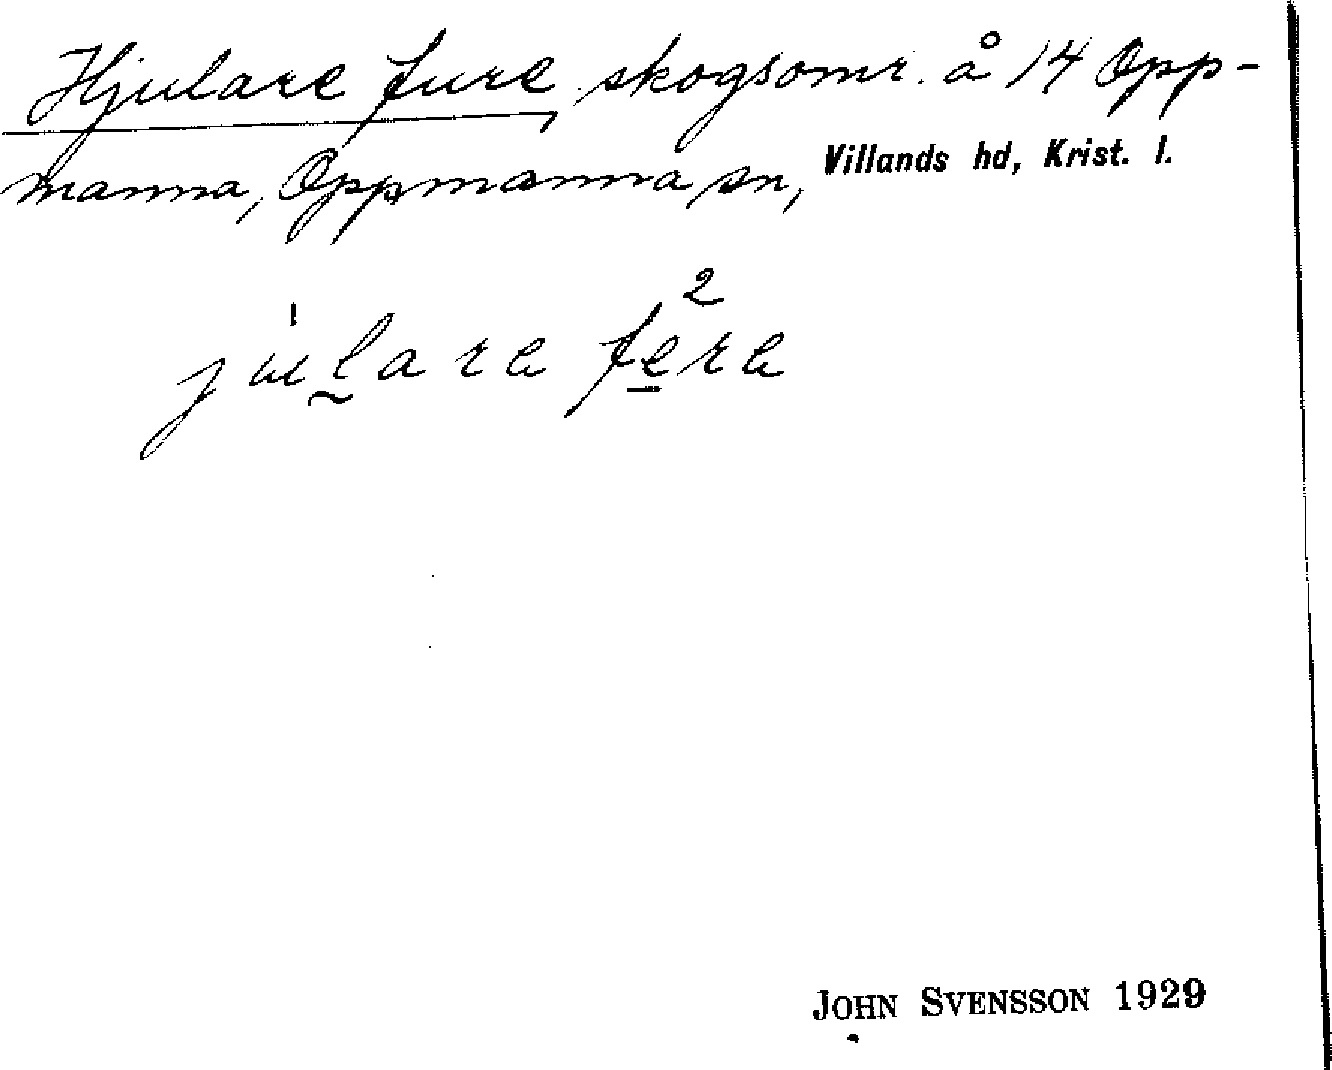 Hjulare fure, skogsomr. å 14 Opp-
manna, Oppmanna sn, Villands hd, Krist. l.
JOHN SVENSSON 1929